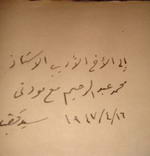 إلى الأخ الأديب الأستاذ
محمد عبد الرحيم مع مودتي
سيد قطب ١٩٤٧/٤/١٦